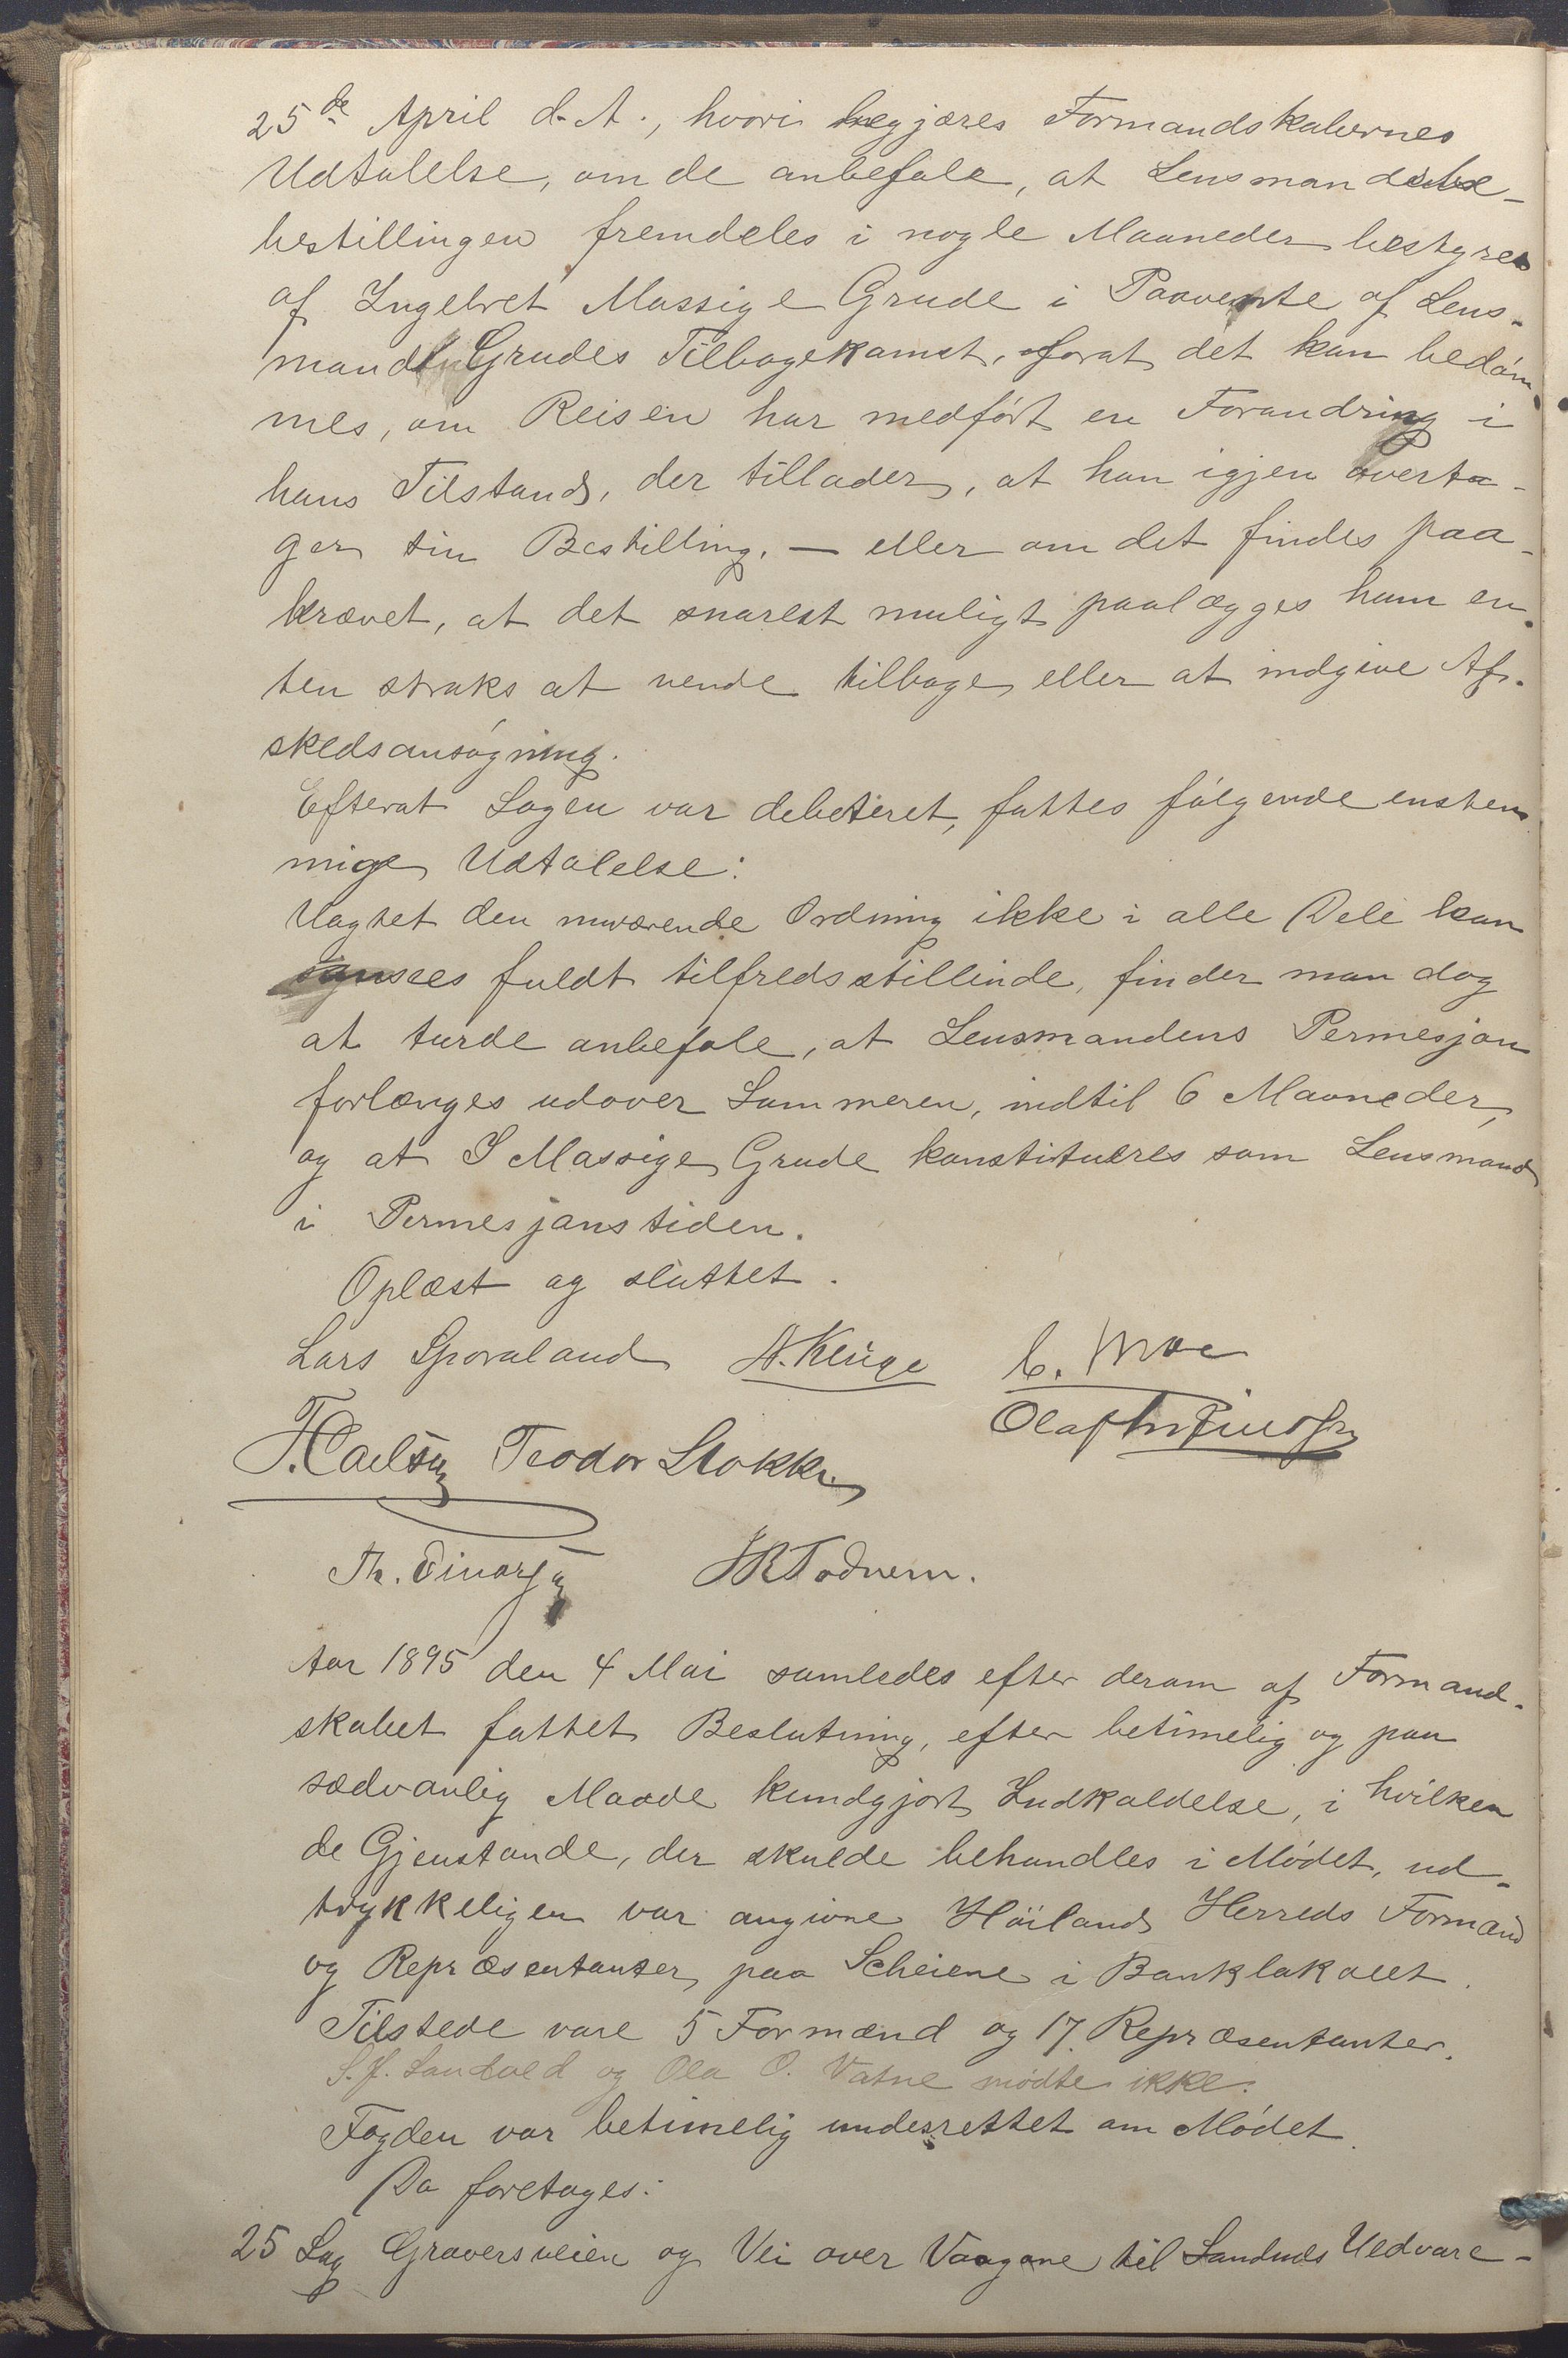 25de April d. A., hvori begjæres Formandskabernes
Udtalelse, om de anbefale, at Lensmands-
bestillingen fremdeles i nogle Maaneder bestyres
af Ingebret Massige Grude i Paavente af Lens-
mand Grudes Tilbagekomst, forat det kan bedøm-
mes, om Reisen har medført en Forandring i
hans Tilstand, der tillader, at han igjen overta-
ger sin Bestilling, — eller om det findes paa-
krævet, at det snarest muligt paalægges ham en-
ten straks at vende tilbage eller at indgive Af-
skedsansøgning.
Efterat Sagen var debateret, fattes følgende enstem
mige Udtalelse:
Uagtet den nuværende Ordning ikke i alle Dele kan
ansees fuldt tilfredsstillende, finder man dog
at turde anbefale, at Lensmandens Permesjon
forlænges udover Sommeren, indtil 6 Maaneder,
og at I Massige Grude konstitueres som Lensmand
i Permesjonstiden.
Oplæst og sluttet.
Lars A. Kluge C. Moe
T. Carlsen Teodor Stokke Olaf
Th. Einarsen
Aar 1895 den 4 Mai samledes efter derom af Formand-
skabet fattet Beslutning, efter betimelig og paa
sædvanlig Maade kundgjort Indkaldelse, i hvilken
de Gjenstande, der skulde behandles i Mødet, ud-
trykkeligen var angivne Høilands Herreds Formænd
og Repræsentanter paa Scheiene i Banklokalet.
Tilstede vare 5 Formænd og 17 Repræsentanter.
S. J. Sandved og Ola O. Vatne mødte ikke.
Fogden var betimelig underrettet om Mødet.
Da foretages:
25 Sag Graversveien og Vei over Vaagene til Sandnes Uldvare-